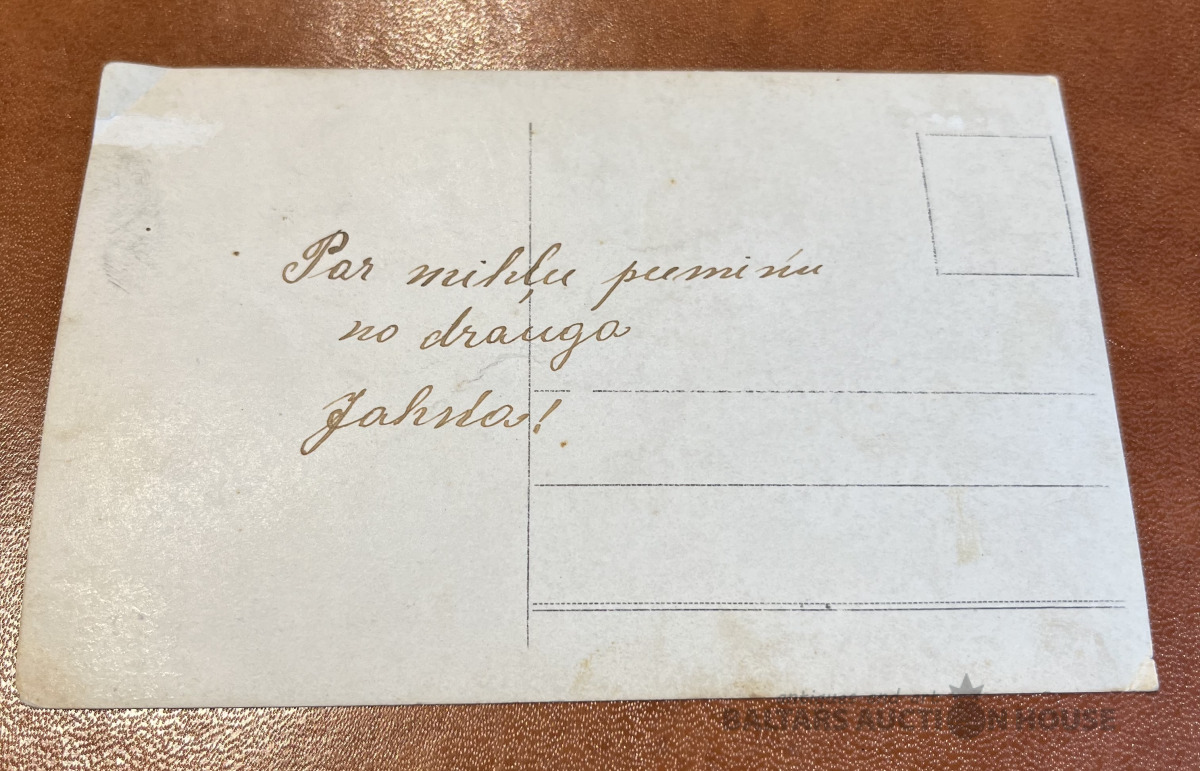 Par mihļu peemińu
no drauga
Jahńa!
BALTARS AUCTION HOUSE